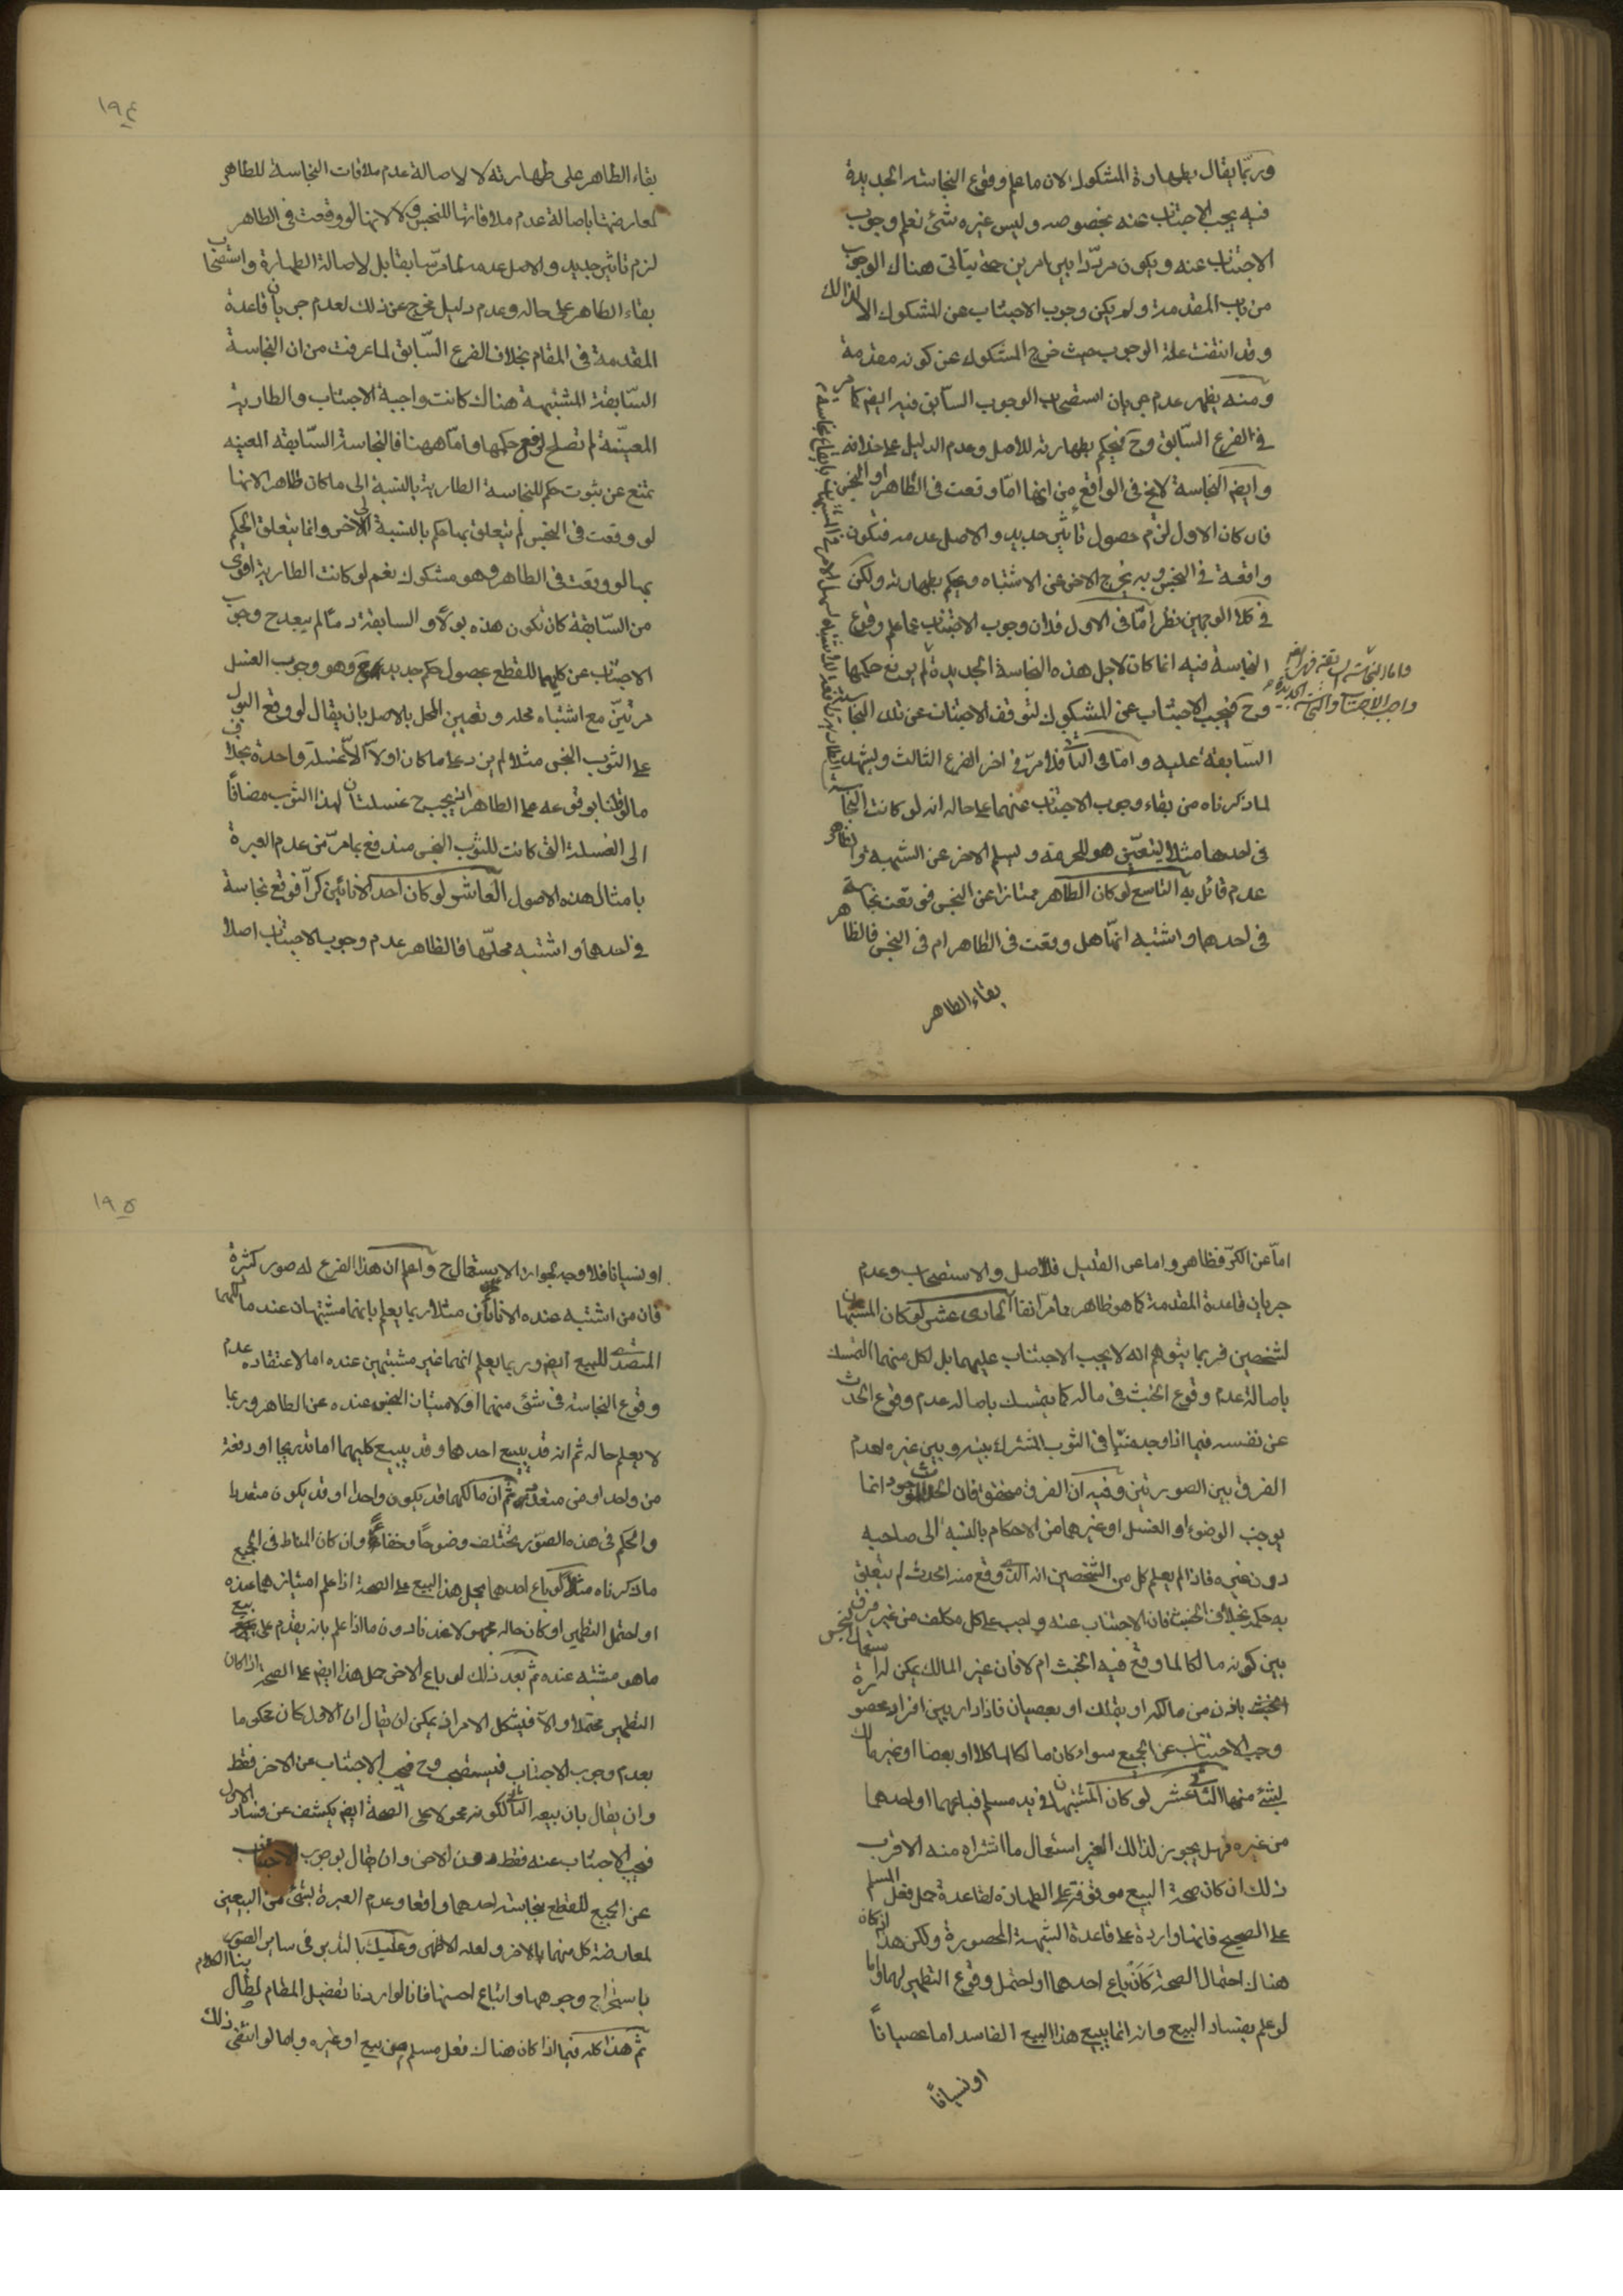 وربّما يقال بطهارة المشكوك الان ما علم وقوع النجاسة الجديدة
فيه يجب الاجتناب عنه بخصوصه وليس غيره شئ نعلم وجوب
الاجتناب عنه ويكون مردّدا بين امرين حتى يتأتى هناك الوجوب
من باب المقدمة ولم يكن وجوب الاجتناب عن المشكوك الا لذالك
وقد انتفت علة الوجوب حيث خرج المشكوك عن كونه مقدمة
ومنه يظهر عدم جريان استصحاب الوجوب السابق فيه ايضم كما مر
في الفرع السّابق وح فيحكم بطهارته للاصل وعدم الدليل على خلافه
وايضم النجاسة لايخ في الواقع من انها امّا وقعت في الظّاهر او النجس
فان كان الاول لزم حصول تاثير جديد والاصل عدمه فتكون
واقعة في النجس وبه يخرج الاخر عن الاشتباه ويحكم بطهارته ولكن
في كلا الوجهين نظر امّا في الاول فلان وجوب الاجتناب عما علم وقوع
النجاسة فيه انما كان لاجل هذه النجاسة الجديدة لم يرفع حكمها
وح فيجب الاجتناب عن المشكوك لتوقف الاجتناب عن تلك النجاسة
السّابقة عليه وامّا في الثاني فلما مرّ في اخر الفرع الثالث ويشهد
لما ذكرناه من بقاء وجوب الاجتناب عنهما على حاله انه لو كانت النجاسة
في احدهما مثلا ليتعيّن هو للحرمة ويسلم الاخر عن الشبهة والظاهر
عدم قائل به التاسع لو كان الطاهر ممتازا عن النجس فوقعت نجاسة
في احدهما واشتبه انّها هل وقعت في الظاهر ام في النجس فالظاهر
بقاء الطاهر
١٩٤
بقاء الطاهر على طهارته لا لاصالة عدم ملاقات النجاسة للطاهر
لمعارضتها باصالة عدم ملاقاتها للنجس ولا لانها لو وقعت في الطاهر
لزم تاثير جديد والاصل عدمه لما مرّ سابقا بل لاصالة الطهارة واستصحاب
بقاء الطاهر على حاله وعدم دليل مخرج عن ذلك لعدم جريان قاعدة
المقدمة في المقام بخلاف الفرع السّابق لما عرفت من ان النجاسة
السّابقة المشتبهة هناك كانت واجبة الاجتناب والطارية
المعيّنة لم تصلح لرفع حكمها وامّا ههنا فالنجاسة السّابقة المعينه
تمنع عن ثبوت حكم للنجاسة الطارية بالنسبة الى ما كان طاهر الانها
لو وقعت في النجس لم يتعلق بها حكم بالنسبة الى الاخر وانما يتعلق الحكم
بها لو وقعت في الطاهر وهو مشكوك نعم لو كانت الطارية اقوى
من السّابقة كان تكون هذه بولا والسابقة دما لم يبعد ح وجوب
الاجتناب عن كليهما للقطع بحصول حكم جديد ح وهو وجوب الغسل
مرتين مع اشتباه محله وتعيين المحل بالاصل بان يقال لو وقع البول
على الثوب النجس مثلا لم يزد على ما كان اولا الّا غسلة واحدة بخلاف
ما لو قلنا بوقوعه على الطاهر اذ يجب ح غسلتان لهذا الثوب مضافًا
الى الغسلة التي كانت للثوب النجس مندفع بما مرّ من عدم العبرة
بامثال هذه الاصول العاشر لو كان احد الانائين كرّا فوقع نجاسة
في احدهما واشتبه محلّها فالظاهر عدم وجوب الاجتناب اصلا
امّا عن الكرّ فظاهر واما عن القليل فللاصل والاستصحاب وعدم
جريان قاعدة المقدمة كما هو ظاهر مما مر آنفا الحادى عشر لو كان المشتبهان
لشخصين فربما يتوهم انه لا يجب الاجتناب عليهما بل لكل منهما التمسك
باصالة عدم وقوع الخبث في ماله كما يتمسك باصالة عدم وقوع الحدث
عن نفسه فيما اذا وجد منيّا في الثوب المشترك بينه وبين غيره لعدم
الفرق بين الصورتين وفيه ان الفرق متحقق فان الحدث الموجود انما
يوجب الوضوء او الغسل او غيرهما من الاحكام بالنسبة الى صاحبه
دون غيره فاذا لم يعلم كل من الشخصين انه الذى وقع منه الحدث لم يتعلق
به حكمه بخلاف الخبث فان الاجتناب عنه واجب على كل مكلف من غير فرق
بين كونه مالكا لما وقع فيه الخبث ام لا فان غير المالك يمكن له استعمال النجس
الخبث باذن من مالكه او بتملك او بعصيان فاذا دار بين افراد محصورة
وجب الاجتناب عن الجميع سواء كان مالكا لها كلا او بعضا او غير مالك
لشئ منها الثانى عشر لو كان المشتبهان في يد مسلم فباعهما او احدهما
من غيره فهل يجوز لذالك الغير استعمال ما اشتراه منه الاقرب
ذلك ان كان صحة البيع موقوفة على الطهارة لقاعدة حمل فعل المسلم
على الصحيح فانها واردة على قاعدة الشبهة المحصورة ولكن هذا ان كان
هناك احتمال الصحة كَاَنْ باع احدهما او احتمل وقوع التطهير لهما واما
لو علم بفساد البيع وانه انما يبيع هذا البيع الفاسد اما عصيانًا
او نسيانًا
١٩٥
او نسيانا فلا وجه لجواز الاستعمال ح واعلم ان هذا الفرع له صور كثيرة
فان من اشتبه عنده الاناءان مثلا ربما يعلم بانهما مشتبهان عند مالكهما
المتصدى للبيع ايضم وربما يعلم انهما غير مشتبهين عنده اما لاعتقاده عدم
وقوع النجاسة في شئ منهما او لامتياز النجس عنده عن الطاهر وربما
لا يعلم حاله ثم انه قد يبيع احدهما وقد يبيع كليهما اما تدريجا او دفعة
من واحد او من متعدد ثم ان مالكهما قد يكون واحدا او قد يكون متعددا
والحكم في هذه الصور يختلف وضوحًا وخفاءً وان كان المناط في الجميع
ما ذكرناه مثلا لو باع احدهما يحمل هذا البيع على الصحة اذا علم امتيازهما عنده
او احتمل التطهير او كان حاله مجهولا عندنا دون ما اذا علم بانه يقدم على بيع
ما هو مشتبه عنده ثم بعد ذلك لو باع الاخر حمل هذا ايضم على الصحة اذا كان
التطهير محتملا والا فيشكل الامر اذ يمكن ان يقال ان الاول كان محكوما
بعدم وجوب الاجتناب فيستصحب وح فيجب الاجتناب عن الاخر فقط
وان يقال بان بيعه الثانى لكونه محمولا على الصحة ايضم يكشف عن فساد الاول
فيجب الاجتناب عنه فقط دون الاخر وان يقال بوجوب الاجتناب
عن الجميع للقطع بنجاسة احدهما واقعا وعدم العبرة بشئ من البيعين
لمعارضة كل منهما بالاخر ولعله الاظهر وعليك بالتدبر في ساير الصور
باستخراج وجوهها واتباع احسنها فانا لو اردنا تفصيل المقام لطال بنا الكلام
ثم هذا كله فيما اذا كان هناك فعل مسلم من بيع او غيره واما لو انتفى ذلك